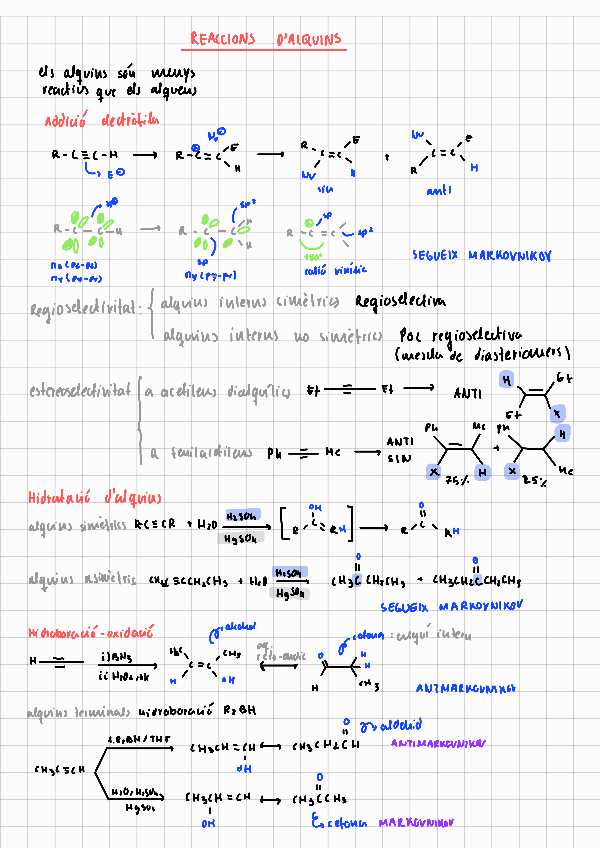 REACCIONS D'ALQUINS
els alquins són menys
reactius que els alquens
Addició electròfila
R-C≡C-H → R-C=C E H → R Nu C=C E H + Nu R C=C E H
E⊕
sin
anti
R-C-C-H → R-C-C H H
sp²
sp
R-C=C
sp
sp²
180º
catió vinílic
SEGUEIX MARKOVNIKOV
Regioselectivitat: alquins interns simètrics Regioselectiva
alquins interns no simètrics Poc regioselectiva
(mescla de diastereomers)
estereoselectivitat a acetilens dialquílics Et ≡ Et → ANTI H Et Et X
a fenilacetilens Ph ≡ Me → ANTI
SIN
Ph Me X H 75% + Ph H X Me 25%
Hidratació d'alquins
alquins simètrics RC≡CR + H2O H2SO4 HgSO4 [ OH R C=C R H ] → R C O RH
alquins asimètrics CH3C≡CCH2CH3 + H2O H2SO4 HgSO4 CH3CCH2CH2CH3 + CH3CH2CCH2CH3
SEGUEIX MARKOVNIKOV
Hidroboració-oxidació
alcohol
cetona: alquí intern
H ≡ i) BH3
ii) H2O2, OH
H3C C=C CH3 H OH
eq. ceto-enòlic
O H H H CH3
ANTIMARKOVNIKOV
alquins terminals Hidroboració R2BH
1. R2BH / THF CH3CH=CH OH ↔ CH3CH2CH O aldehid ANTIMARKOVNIKOV
CH3C≡CH
H2O, H2SO4
HgSO4
CH3CH=CH OH ↔ CH3CCH3 O
cetona MARKOVNIKOV